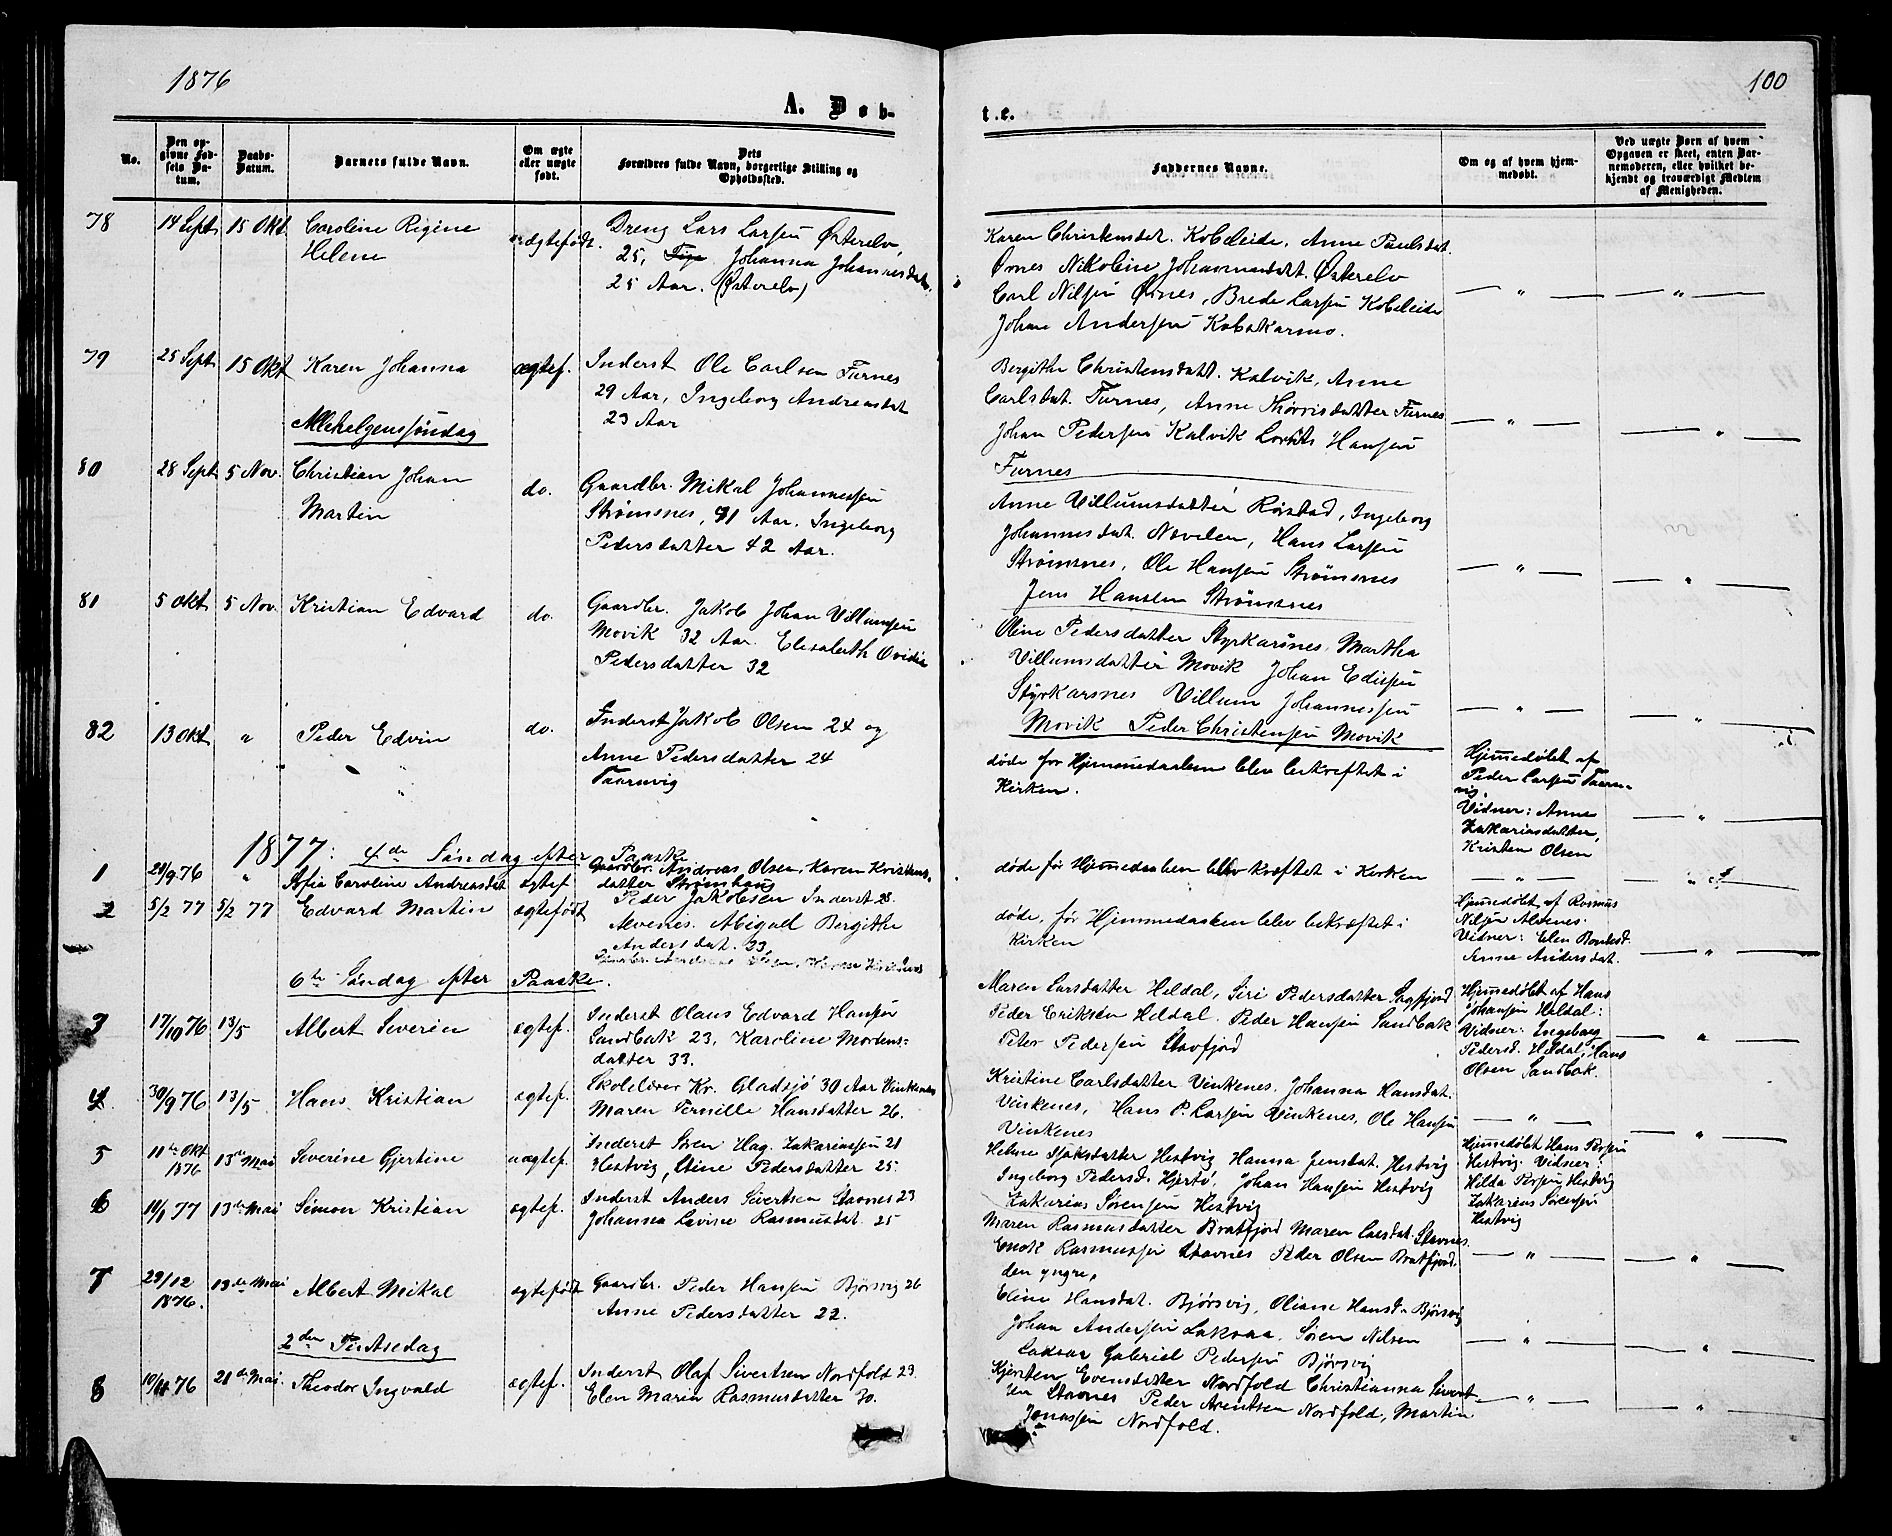 1876
100
A. Døb-
t.e.
No.
Den op-
givne Fød-
sels Da-
tum.
Daabs-
Datum.
Barnets fulde Navn.
Om ægte
eller uægte
født.
Dets
Forældres fulde Navn, borgerlige Stilling og
Opholdssted.
Faddernes Navne.
Om og af hvem hjem-
medøbt.
Ved uægte Born af hvem
Opgaven er skeet, enten Bar-
nemoderen, eller hvilket be-
kjendt og troværdigt Medlem
af Menigheden.
78 14 Sept 15 Okt Caroline Rigine uægtefødt. Dreng Lars Larsen Østerelv,
Helene 25, Johanna Johannesdat.
25 Aar. (Østerelv)
Karen Christensdat. Kobeleide, Anne Paulsdat.
Ørnes Nikoline Johannesdat. Østerelv
Carl Nilsen Ørnes, Brede Larsen Kobeleide
Johan Andersen Kobskarmo.
79 25 Sept 15 Okt Karen Johanna ægtef. Inderst Ole Carlsen Furnes
29 Aar, Ingeborg Andreasdat
23 Aar
Bergithe Christensdatt. Kalvik, Anne
Carlsdat. Furnes, Anne Thorrisdatter Furnes
Johan Pedersen Kalvik Lorents Hansen
Furnes
Allehelgenssøndag
80 28 Sept 5 Nov. Christian Johan do. Gaardbr. Mikal Johannessen
Martin Strømsnes, 41 Aar. Ingeborg
Pedersdatter 42 Aar.
Anne Villumsdatter Røistad, Ingeborg
Johannesdat. Nævelen, Hans Larsen
Strømsnes, Ole Hansen Strømsnes
Jens Hansen Strømsnes
81 5 Okt 5 Nov. Kristian Edvard do. Gaardbr. Jakob Johan Villumsen
Movik 32 Aar. Elisabeth Ovidia
Pedersdatter 32
Oline Pedersdatter Styrkarsnes. Martha
Villumsdatter Movik Johan Edissen
Styrkarsnes Villum Johannessen
Movik Peder Christensen Movik
82 13 Okt " Peder Edvin do. Inderst Jakob Olsen 24 og
Anne Pedersdatter 24
Taarnvig
døde før Hjemmedaaben blev bekræftet i
Kirken.
Hjemmedøbt af
Peder Larsen Taarn-
vig.
Vidner: Anne
Zakariasdatter,
Kristen Olsen
1877: 4de Søndag efter Paaske
1 21/9 76 " Sofia Caroline Andreasdat ægtef Gaardbr. Andreas Olsen, Karen Kristens-
datter Strømhaug
døde før Hjemmedaaben blev kræftet i Kirken
2 5/2 77 5/2 77 Edvard Martin ægtefødt Peder Jakobsen Inderst 28.
Alvenes. Abigael Bergithe
Andersdat. 33,
døde, før Hjemmedaaben blev bekræftet i
Kirken
Hjemmedøbt af Rasmus
Nilsen Alvenes.
Vidner: Elen
Anne Andersdat.
6te Søndag efter Paaske.
3 17/10 76 13/5 Albert Severin ægtef. Inderst Olaus Edvard Hansen
Sandbak 23, Karoline Mortens-
datter 33.
Maren Larsdatter Heldal, Siri Pedersdatter Sagfjord
Peder Eriksen Heldal. Peder Hansen Sandbak
Peter Pedersen Stavfjord
Hjemmedøbt af Hans
Johansen Heldal:
Vidner: Ingeborg
Pedersd. Heldal, Hans
Olsen Sandbak.
4 30/9 76 13/5 Hans Kristian ægtef. Skolelærer Kr. Gladsjø 30 Aar Vinkenes
Maren Pernille Hansdatter 26.
Kristine Carlsdatter Vinkenes. Johanna Hansdat.
Vinkenes, Hans P. Larsen Vinkenes, Ole Hansen
Vinkenes
5 11te Okt 1876 13de Mai Severine Gjertine uægtef. Inderst Søren Hag. Zakariassen 21
Hestvig, Stine Pedersdatter 25
Helene Isaksdatter Hestvig Hanna Jensdat. Hestvig
Ingeborg Pedersd. Hjertø, Johan Hansen Hestvig
Zakarias Sørensen Hestvig
Hjemmedøbt Hans Persen
Hestvig. Vidner:
Hilda Persen Hestvig
Zakarias Sørensen
Hestvig
6 10/1 77 13de Mai Simon Kristian ægtef. Inderst Anders Sivertsen Stavnes 23
Johanna Lavine Rasmusdat. 25
Maren Rasmusdatter Bratfjord Maren Larsdat. Stavnes.
Enok Rasmussen Stavnes Peder Olsen Bratfjord.
den yngre,
7 29/12 1876. 13de Mai Albert Mikal ægtefødt Gaardbr. Peder Hansen Bjørsvig 26
Anne Pedersdatter 22.
Eline Hansdat. Bjørsvig, Oliane Hansd. Bjørsvig
Johan Andersen Laksaa. Søren Nilsen
Laksaa Gabriel Pedersen Bjørsvig
2den Pintsedag
8 10/11 76 21de Mai. Theodor Ingvald ægtef. Inderst Olaf Sivertsen Nordfold 23
Elen Maria Rasmusdatter 30.
Kjersten Evensdatter Nordfold Christianna Sivert-
sen Stavnes Peder Arentsen Nordfold, Martin
Jonassen Nordfold.